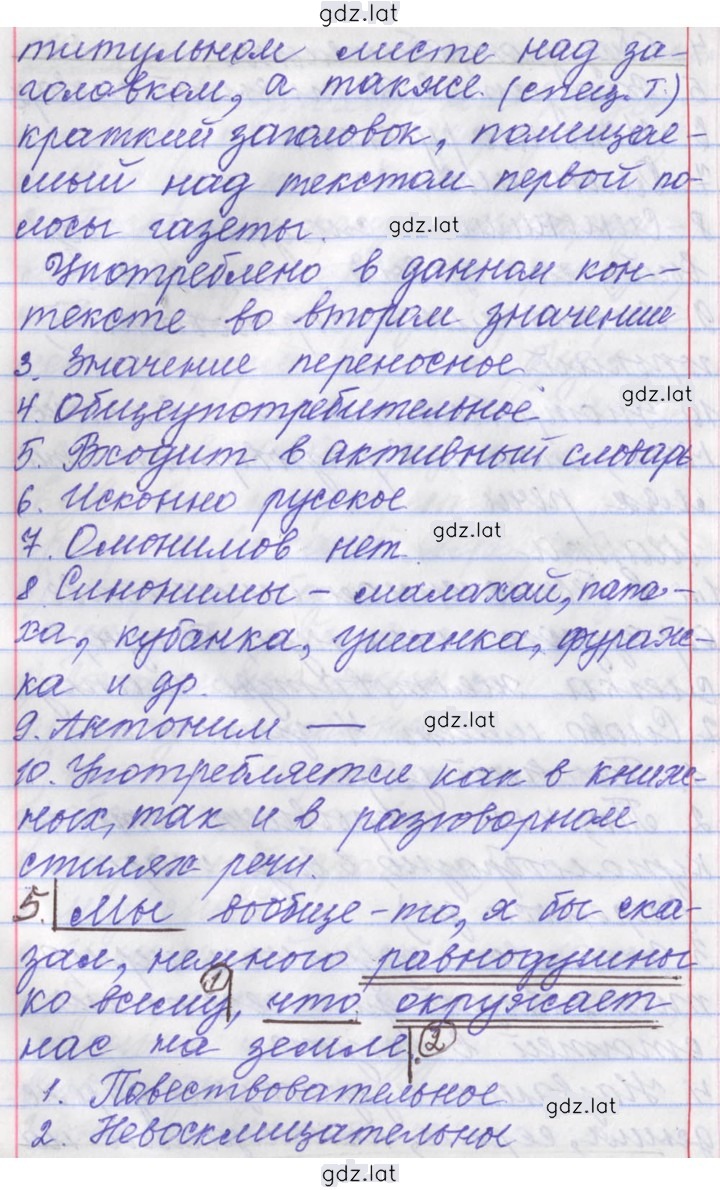 gdz.lat
титульном листе над за-
головком, а также (спец. т.)
краткий заголовок, помещае-
мый над текстом первой по-
лосы газеты. gdz.lat
Употреблено в данном кон-
тексте во втором значении
3. Значение переносное
gdz.lat
4. Общеупотребительное
5. Входит в активный словарь
6. Исконно русское
7. Омонимов нет gdz.lat
8 Синонимы – малахай, папа-
ха, кубанка, ушанка, фураж-
ка и др.
9. Антоним — gdz.lat
10. Употребляется как в книж-
ных, так и в разговорном
стилях речи.
5. Мы вообще-то, я бы ска-
зал, немного равнодушны
ко всему, 1 что окружает
нас на земле. 2
1. Повествовательное
gdz.lat
2. Невосклицательное
gdz.lat